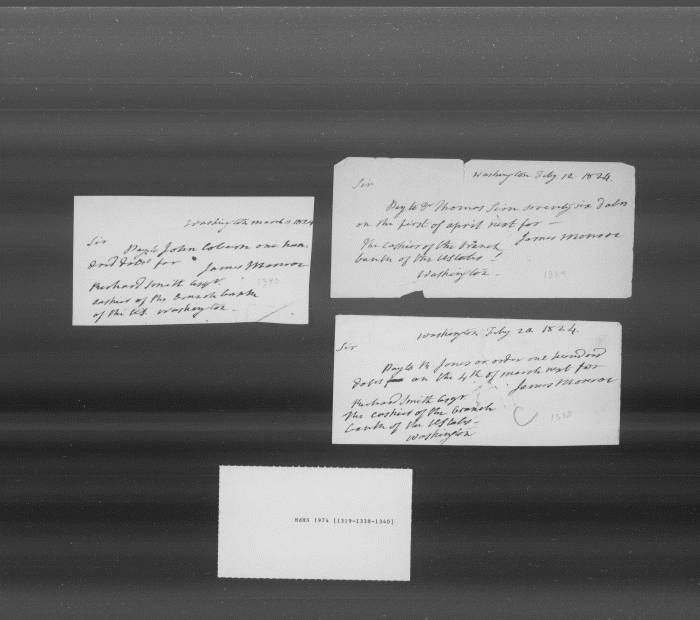 Washington March 11 1824
Sir
Pay to John Coburn one hun-
dred dolrs for
James Monroe
Richard Smith Esqr.
cashier of the branch bank
of the US. Washington -
1340
Washington Feby 12. 1824.
Sir
Pay to Dr Thomas Sim seventy six dolrs
on the first of april next for -
James Monroe
The cashier of the branch
bank of the UStates
Washington -
1339
Washington Feby 20. 1824.
Sir
Pay to Jones or order one hundred
dolrs on the 4th of march next for
James Monroe
Richard Smith Esqr
The cashier of the branch
bank of the UStates -
Washington
1338
1974 [1319-1338-1340]